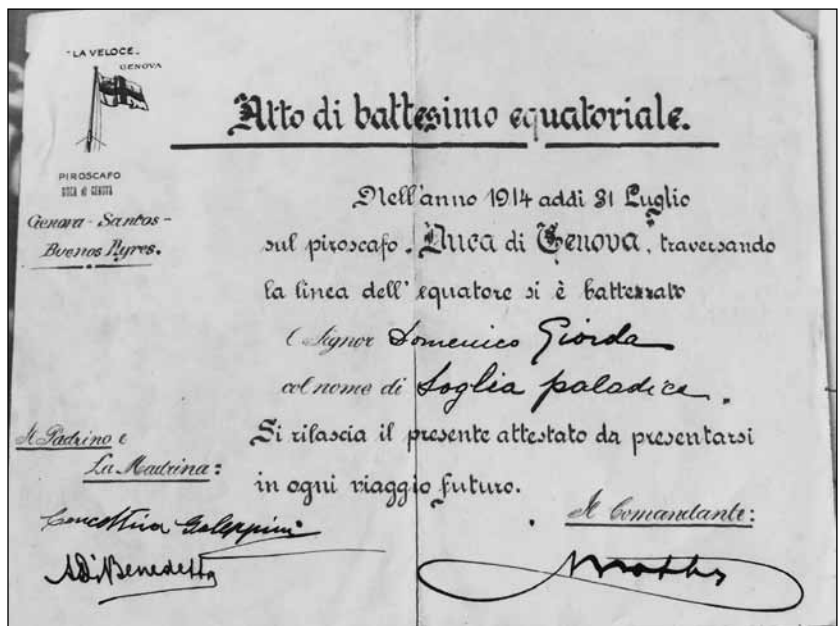 "LA VELOCE"
GENOVA
PIROSCAFO
DUCA di GENOVA
Genova - Santos -
Buenos Ayres.
Atto di battesimo equatoriale.
Nell'anno 1914 addi 31 Luglio
sul piroscafo "Duca di Genova", traversando
la linea dell'equatore si è battezzato
l Signor Domenico Giorda
col nome di Soglia paladica.
Si rilascia il presente attestato da presentarsi
in ogni viaggio futuro.
Il Padrino e
La Madrina:
Concettina Galeppini
A Di Benedetto
Il Comandante: